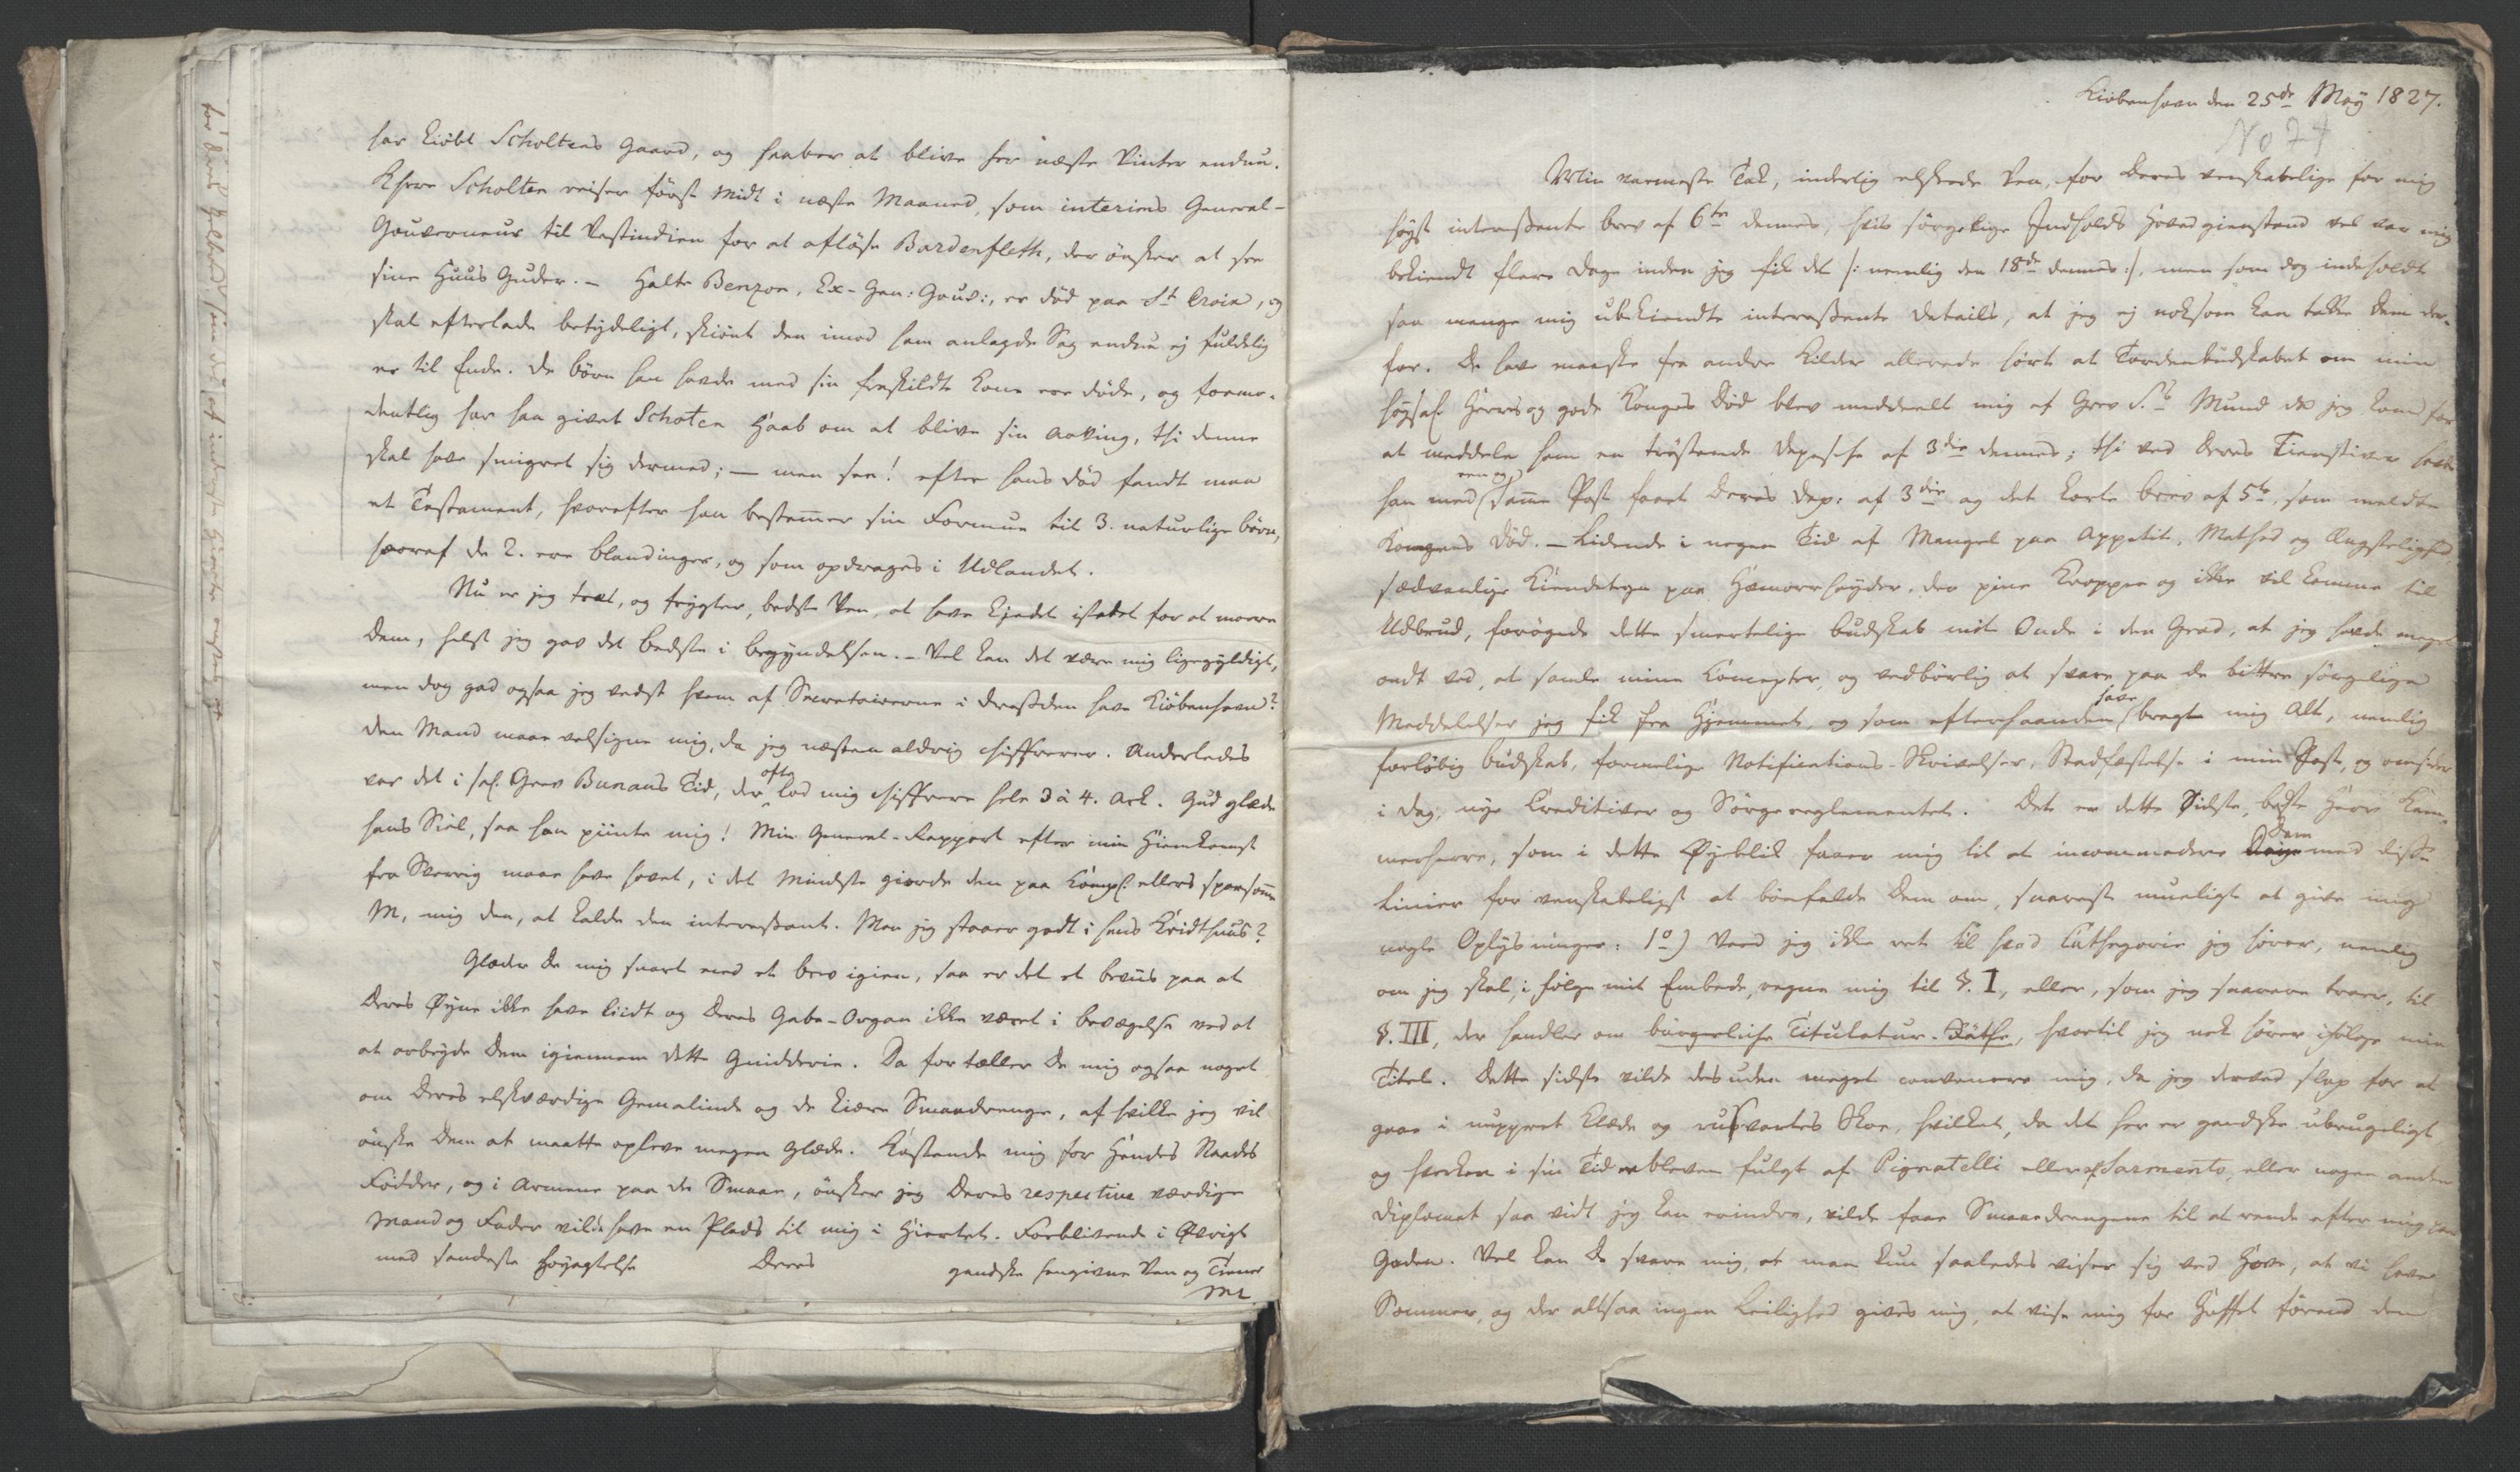 har kiöbt Scholtens Gaard, og haaber at blive her næste Vinter endnu.
Kherr Scholten reiser först midt i næste Maaned, som interims General-
Gouverneur til Vestindien for at aflöse Bardenfleth, der önsker at see
sine Huus Guder. – Halte Benzon, Ex-Gen: Gouv:, er död paa St Croix, og
skal efterlade betydeligt, skiönt den imod ham anlagde Sag endnu ej fuldelig
er til Ende. De börn han havde med sin fraskildte Kone ere döde, og formo-
dentlig har han givet Scholten Haab om at blive sin Arving, thi denne
skal have smigret sig dermed; – men see! efter hans död fandt man
et Testament, hvorefter han bestemer sin Formue til 3. naturlige börn,
hvoraf de 2. ere blandinger, og som opdrages i Udlandet.
Nu er jeg træt, og frygter, bedste Ven, at have kjedet istedet for at more
Dem, helst jeg gav det bedste i begyndelsen. – Vel kan det være mig ligegyldigt,
men dog gad ogsaa jeg vedst hvem af Secretairerne i Dresden have Kiöbenhavn?
den Mand maae velsigne mig, da jeg næsten aldrig chiffrerer. Anderledes
var det i sal. Grev Bunaus Tid, der ofte lod mig chiffrere hele 3 à 4. Ark. Gud glæde
hans Siel, saa han piinte mig! Min General-Rapport efter min Hiemkomst
fra Sverrig maae have havet, i det mindste giorde den paa ellers sparsome
M, mig den, at kalde den interessant. Mon jeg staaer godt i hans Kridthuus?
Glæder De mig snart med et brev igien, saa er det et beviis paa at
Deres Øyne ikke have liidt og Deres Gabe-Organ ikke været i bevægelse ved at
at arbeyde Dem igiennem dette Gnidderie. Da fortæller De mig ogsaa noget
om Deres elskværdige Gemalinde og de kiære Smaadrenge, af hvilke jeg vil
önske Dem at maatte opleve megen Glæde. Kastende mig for Hendes Naades
Födder, og i Armene paa de Smaae, önsker jeg Deres respective værdige
Mand og Fader vilde have en Plads til mig i Hiertet. Forblivende i Øvrigt
med sandeste Höyagtelse Deres gandske hengivne Ven og Tiener
Kiöbenhavn den 25de May 1827.
No 74
Min varmeste Tak, inderlig elskede Ven, for Deres venskabelige for mig
höyst interessante brev af 6te dennes, hvis sörgelige Indholds Hovedgienstand vel var mig
bekiendt flere Dage inden jeg fik det /: nemlig den 18de dennes :/, men som dog indeholdt
saa mange mig ubekiendte interessante Details, at jeg ej noksom kan takke Dem der-
for. De have maaske fra andre Kilder allerede hört at Tordenbudskabet om min
höysal. Herres og gode Konges Död blev meddeelt mig af Grev S.s Mund da jeg kom for
at meddele ham en tröstende Depesche af 3die dennes; thi ved Deres Tienstiver havde
han med een og samme Post faaet Deres Dep: af 3die og det korte brev af 5te, som meldte
Kongens Död. – Lidende i nogen Tid af Mangel paa Appetit, Mathed og Ængstelighed,
sædvanlige Kiendetegn paa Hæmorrhoyder, der pine Kroppen og ikke vil komme til
Udbrud, forögede dette smertelige budskab mit Onde i den Grad, at jeg havde meget
ondt ved, at samle mine Concepter, og vedbörlig at svare paa de bittre sörgelige
Meddelelser jeg fik fra Hjemmet, og som efterhaanden have bragt mig Alt, nemlig
forlöbig budskab, formelige Notifications-Skrivelser, Stadfæstelse i min Post, og omsider
i dag, nye Creditiver og Sörgereglementet. Det er dette Sidste, bedste Herr Kam-
merherre, som i dette Øyeblik faaer mig til at incommodere Dem med disse
Linier for venskabeligst at bönfalde Dem om, snarest mueligt at give mig
nogle Oplysninger: 1o) Veed jeg ikke ret til hvad Cathegorie jeg hörer, nemlig
om jeg skal, i fölge mit Embede, regne mig til §. I, eller, som jeg snarere troer, til
§. III, der handler om bürgerliche Titulatur-Räthe, hvortil jeg nok hörer ifölge min
Titel. Dette sidste vilde desuden meget convenere mig, da jeg derved slap for at
gaae i nuppret Klæde og rusvortes Skoe, hvilket, da det her er gandske ubrugeligt
og hverken i sin Tid er bleven fulgt af Pignatelli eller af Sarmento, eller nogen anden
Diplomat saa vidt jeg kan erindre, vilde faae Smaadrengene til at rende efter mig paa
Gaden. Vel kan De svare mig, at man kun saaledes viser sig ved Hove, at vi have
Sommer, og der altsaa ingen Leilighed gives mig, at vise mig for Hoffet förend den